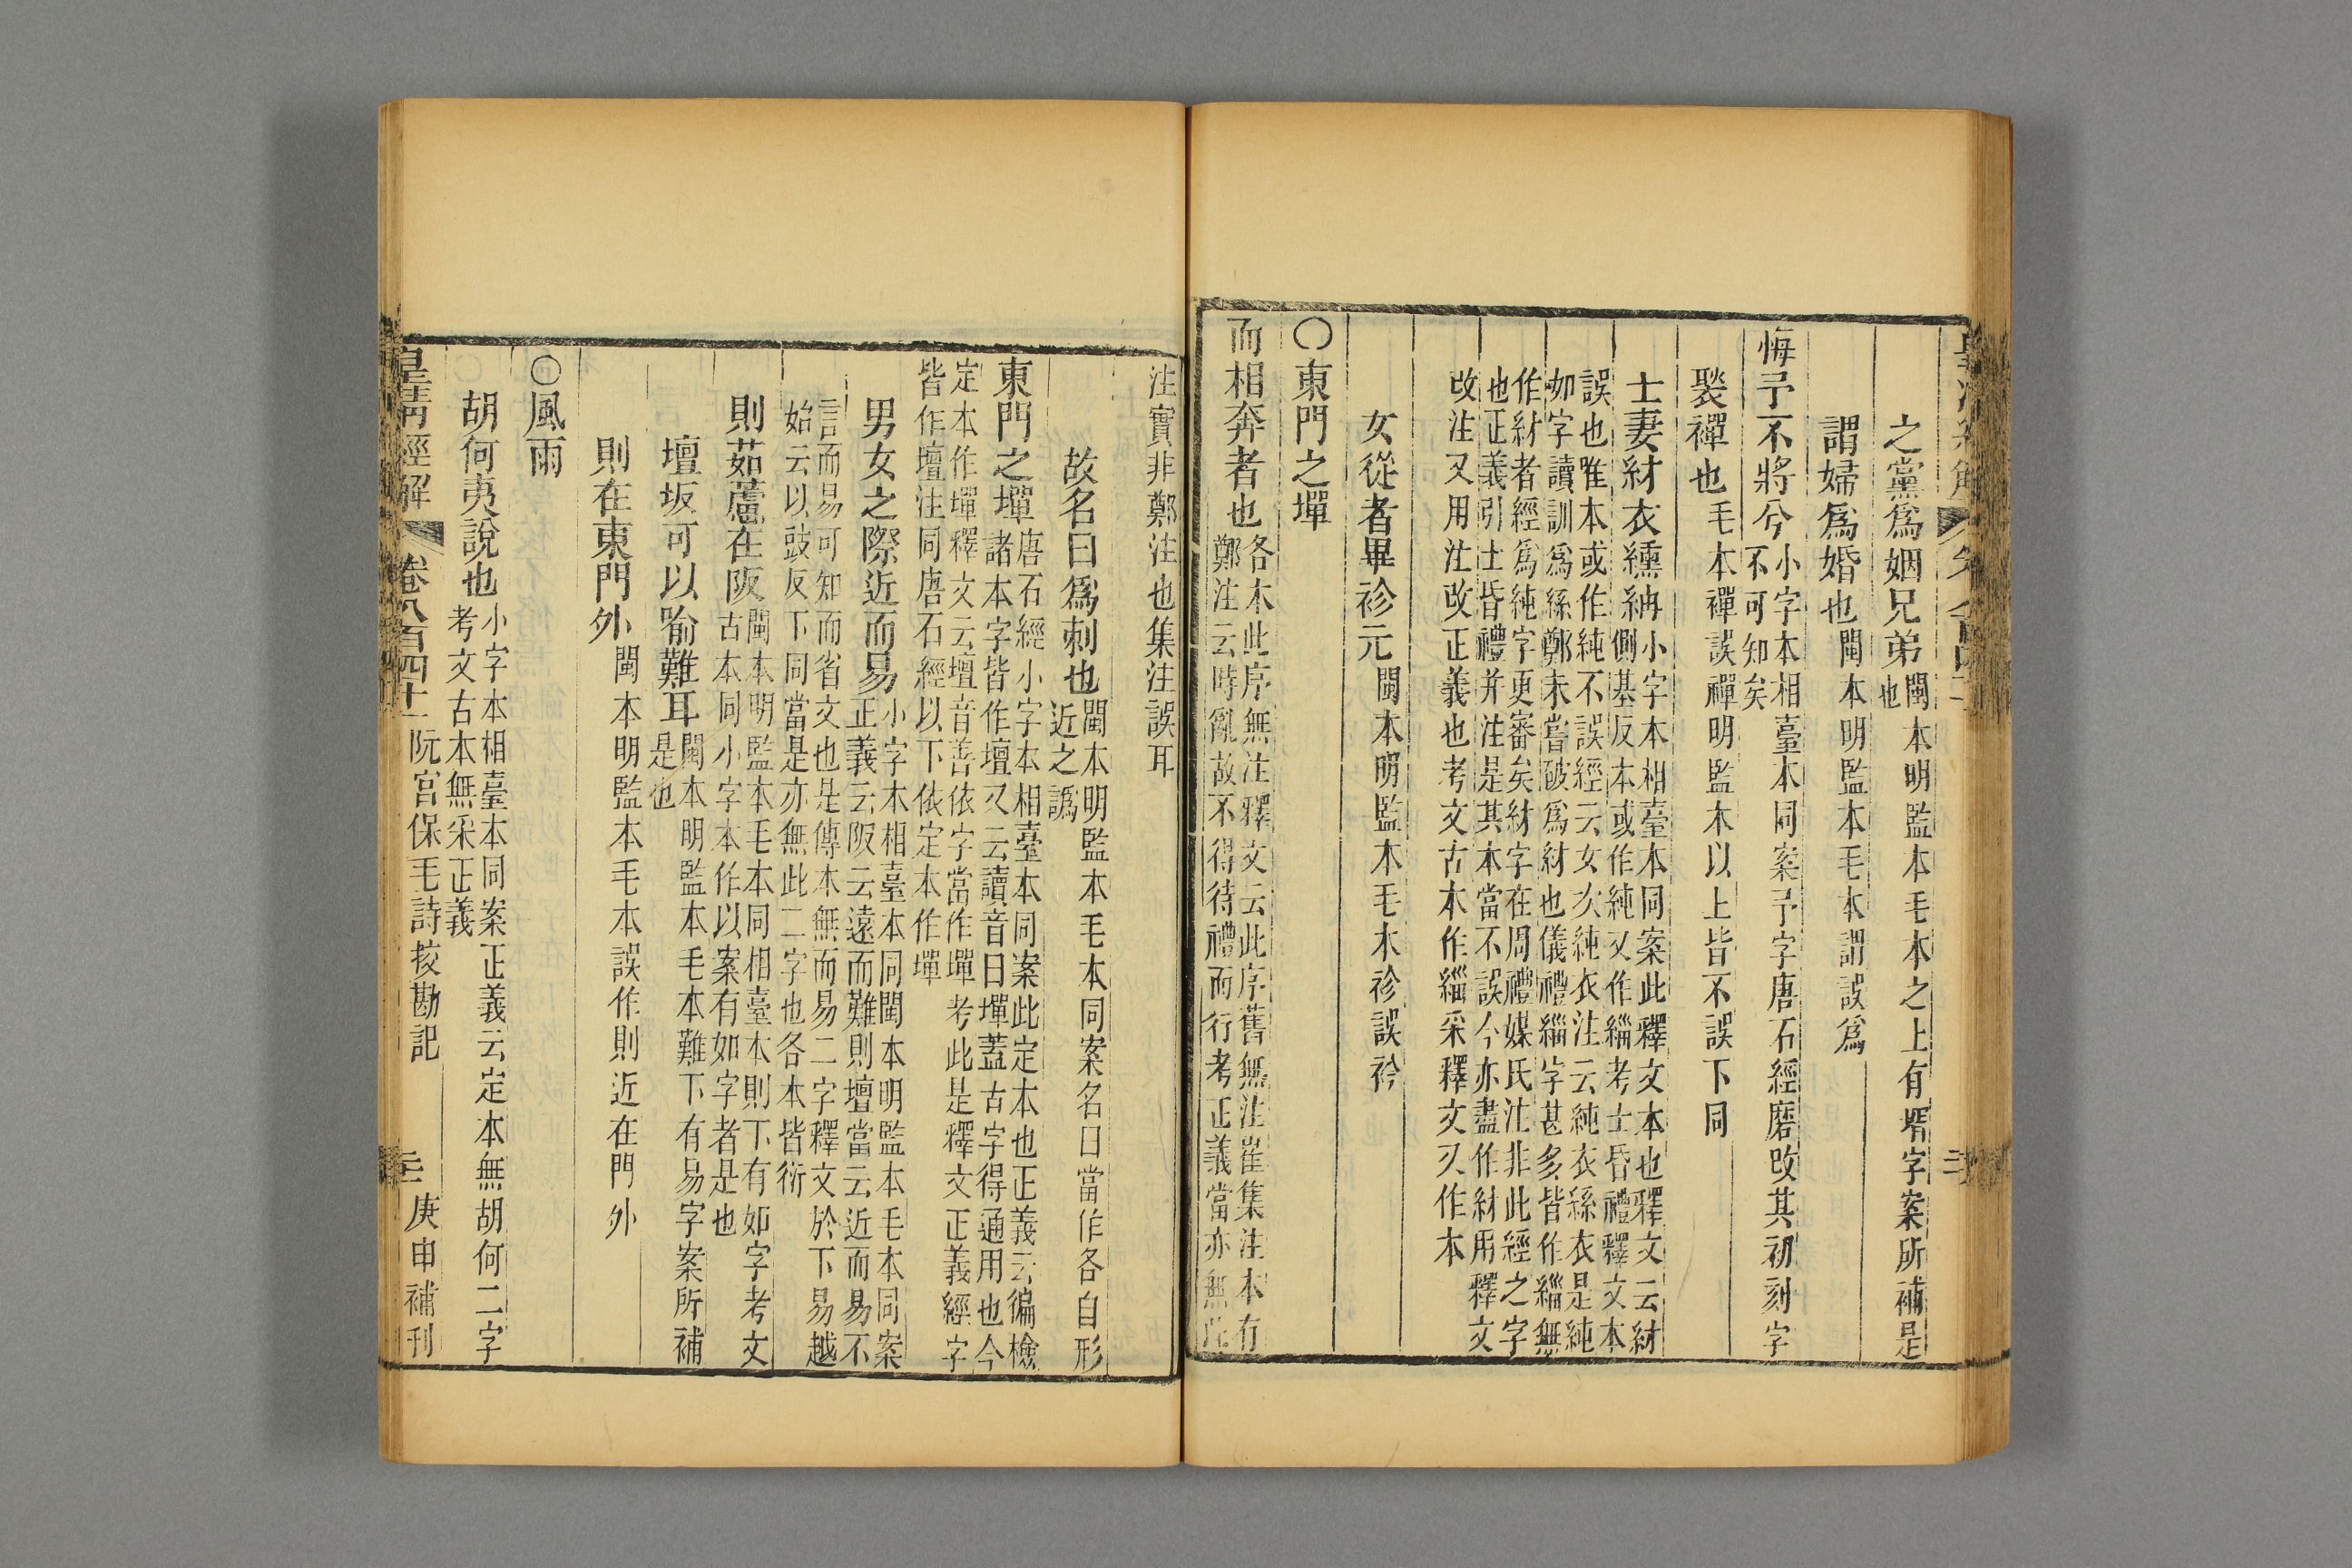 之黨爲姻兄弟閩本明監本毛本之上有壻字案所補是
也
謂婦爲婚也閩本明監本毛本謂誤爲
悔予不將兮小字本相臺本同案予字唐石經磨改其初刻字
不可知矣
褧襌也毛本襌誤禪明監本以上皆不誤下同
士妻紂衣纁袡小字本相臺本同案此釋文本也釋文云紂
側基反本或作純又作緇考士昏禮釋文本
誤也唯本或作純不誤經云女次純衣注云純衣絲衣是純
如字讀訓爲絲鄭未嘗破爲紂也儀禮緇字甚多皆作緇無
作紂者經爲純字更審矣紂字在周禮媒氏注非此經之字
也正義引士昏禮并注是其本當不誤今亦盡作紂用釋文
改注又用注改正義也考文古本作緇采釋文又作本
女從者畢袗元閩本明監本毛本袗誤衿
〇東門之墠
而相奔者也各本此序無注釋文云此序舊無注崔集注本有
鄭注云時亂故不得待禮而行考正義當亦無此
注實非鄭注也集注誤耳
故名曰爲刺也閩本明監本毛本同案名曰當作各自形
近之譌
東門之墠唐石經小字本相臺本同案此定本也正義云徧檢
諸本字皆作壇又云讀音曰墠蓋古字得通用也今
定本作墠釋文云壇音善依字當作墠考此是釋文正義經字
皆作壇注同唐石經以下依定本作墠
男女之際近而易小字本相臺本同閩本明監本毛本同案
正義云阪云遠而難則壇當云近而易不
言而易可知而省文也是傳本無而易二字釋文於下易越
始云以豉反下同當是亦無此二字也各本皆衍
則茹藘在阪閩本明監本毛本同相臺本則下有如字考文
古本同小字本作以案有如字者是也
壇坂可以喻難耳閩本明監本毛本難下有易字案所補
是也
則在東門外閩本明監本毛本誤作則近在門外
〇風雨
胡何夷說也小字本相臺本同案正義云定本無胡何二字
考文古本無采正義
皇淸經解
卷八百四十一 阮宮保毛詩挍勘記
三
庚申補刊